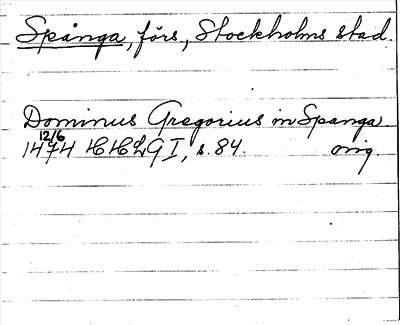 Spånga, förs, Stockholms stad.
Dominus Gregorius in Spanga.
12/6
1474 HHLG I, s. 84. orig.